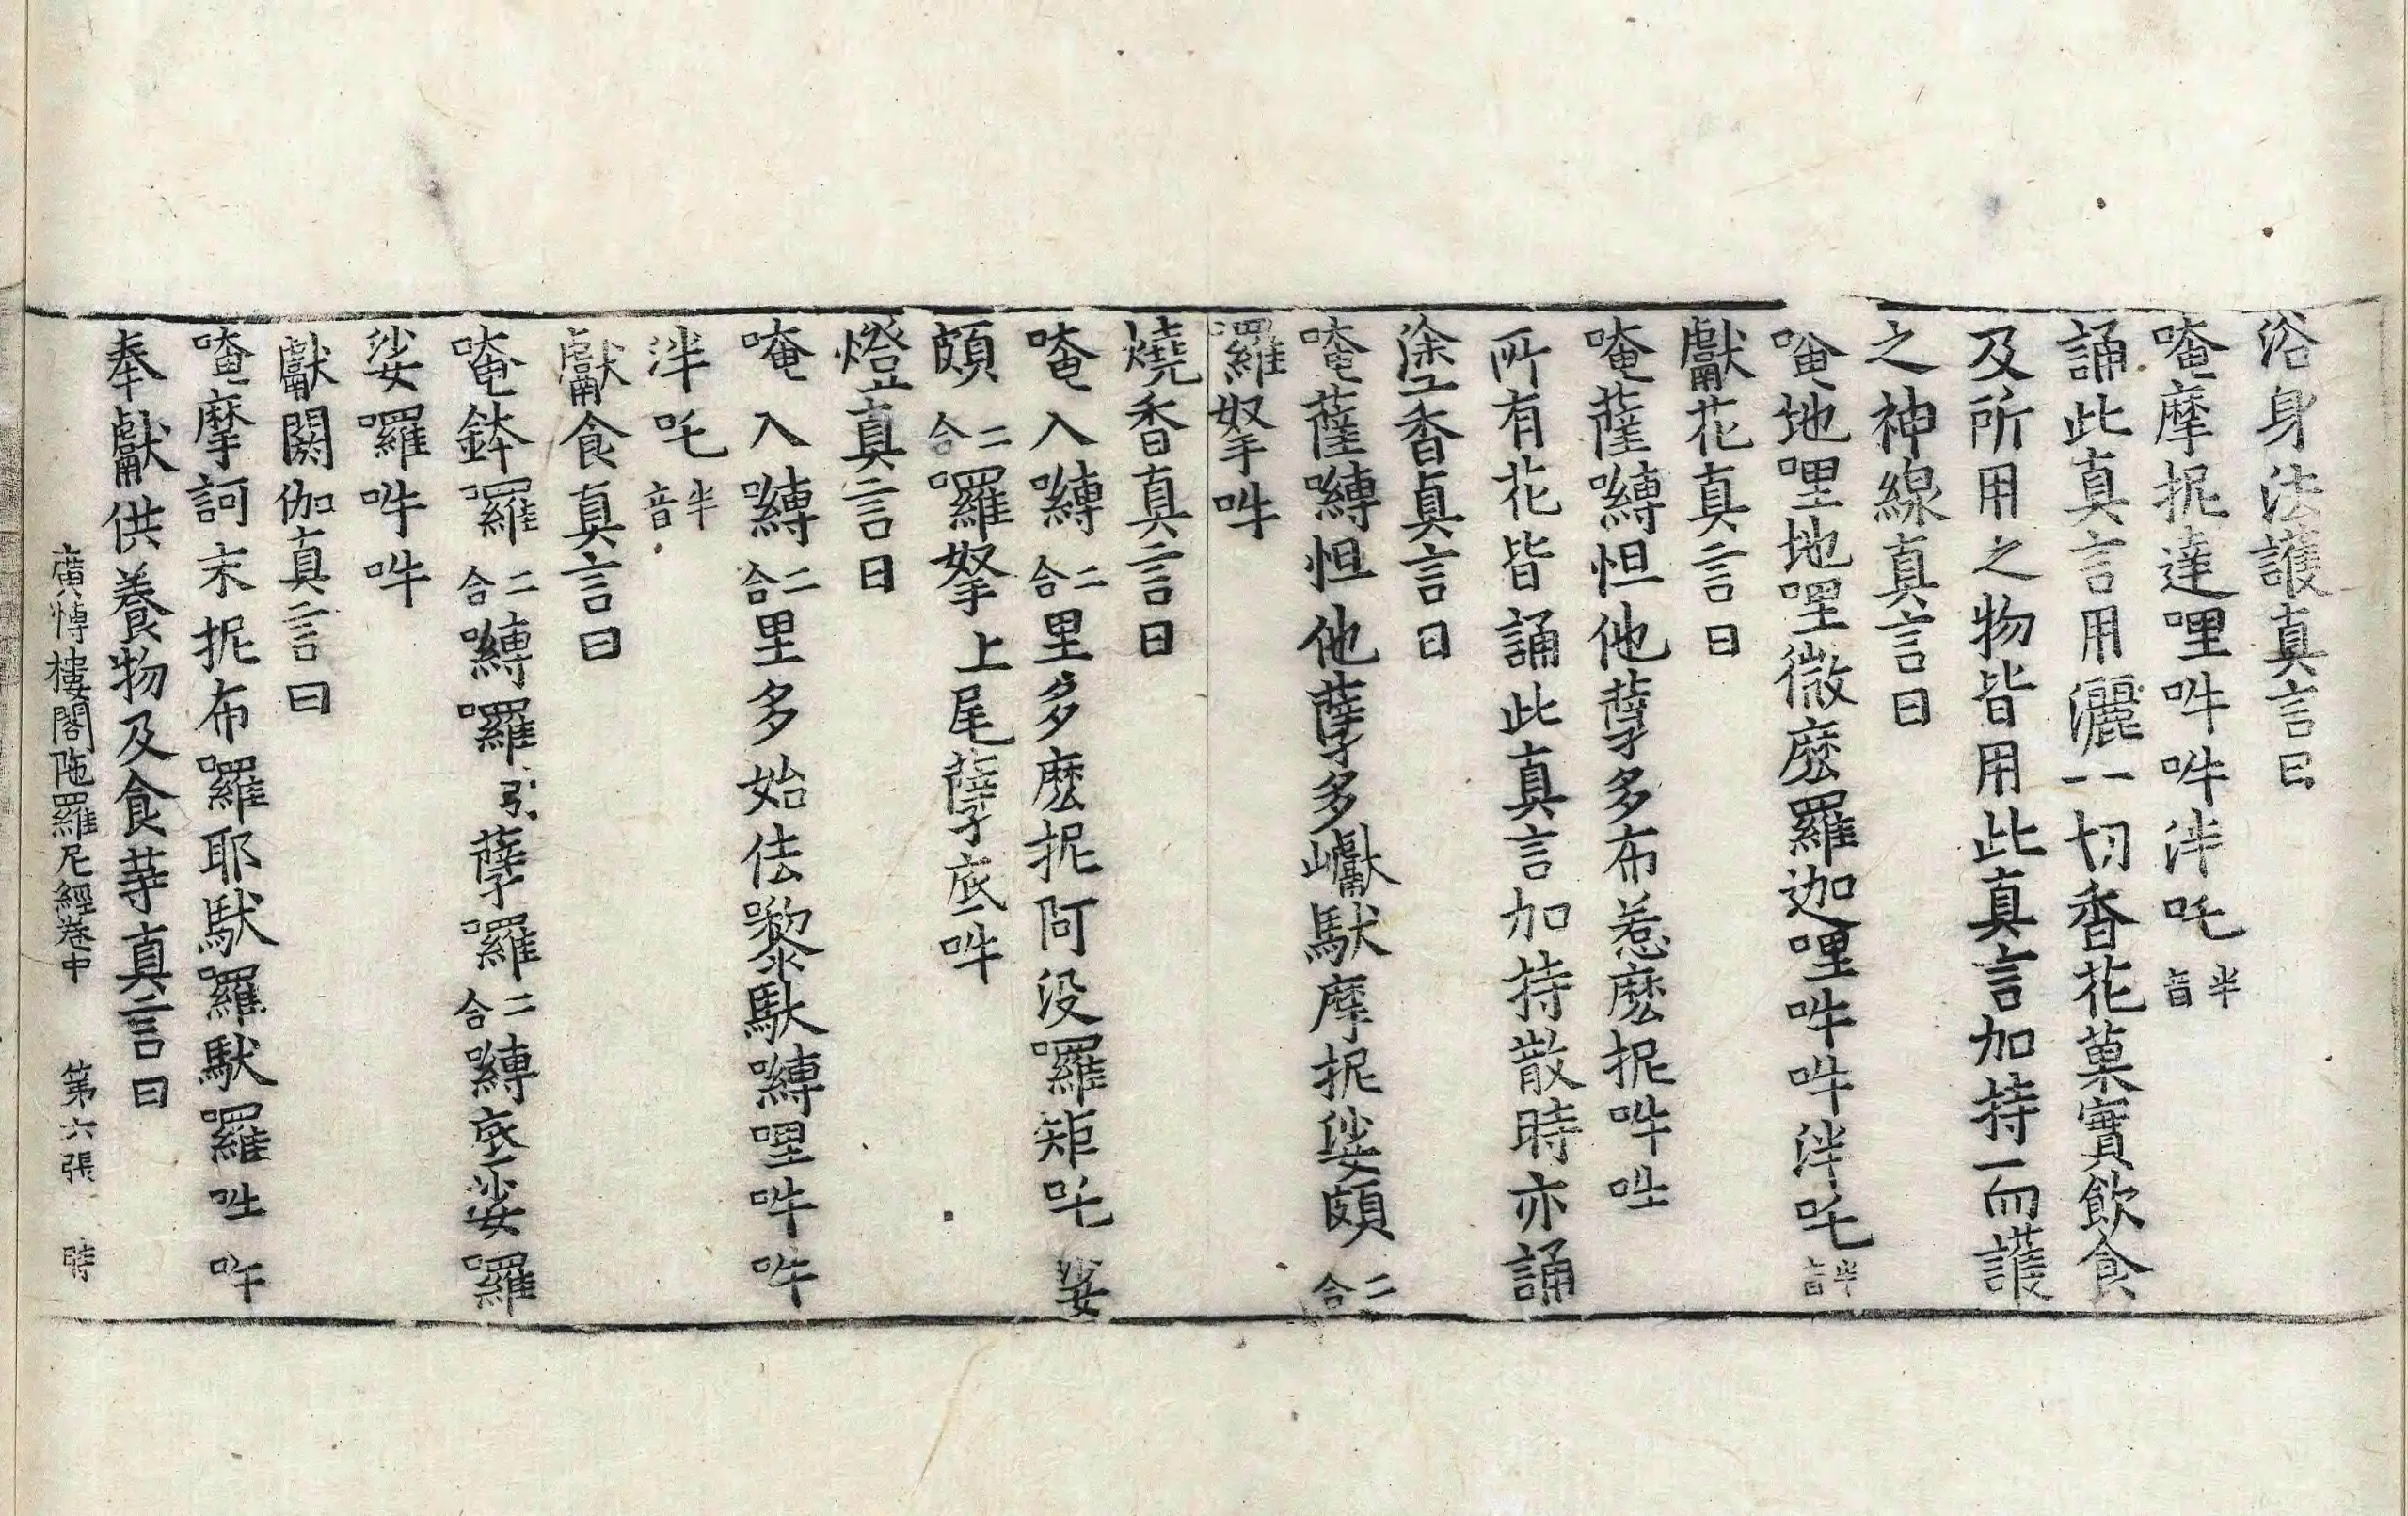 浴身法護真言曰
唵摩抳達哩吽吽泮吒半音
誦此真言用灑一切香花菓實飲食
及所用之物皆用此真言加持一而護
之神線真言曰
唵地哩地哩微麽羅迦哩吽吽泮吒半音
獻花真言曰
唵薩嚩怛他蘖多布惹麽抳吽吽
所有花皆誦此真言加持散時亦誦
塗香真言曰
唵薩嚩怛他蘖多巘馱摩抳娑頗二合
羅拏吽
燒香真言曰
唵入嚩二合里多麽抳阿没囉矩吒娑
頗二合囉拏上尾蘖底吽
燈真言曰
唵入嚩二合里多始佉嚟馱嚩哩吽吽
泮吒半音
獻食真言曰
唵鉢囉二合嚩囉引蘖囉二合嚩底娑囉
娑囉吽吽
獻閼伽真言曰
唵摩訶末抳布囉耶馱囉馱囉吽吽
奉獻供養物及食等真言曰
廣博樓閣陁羅尼經卷中 第六張 時